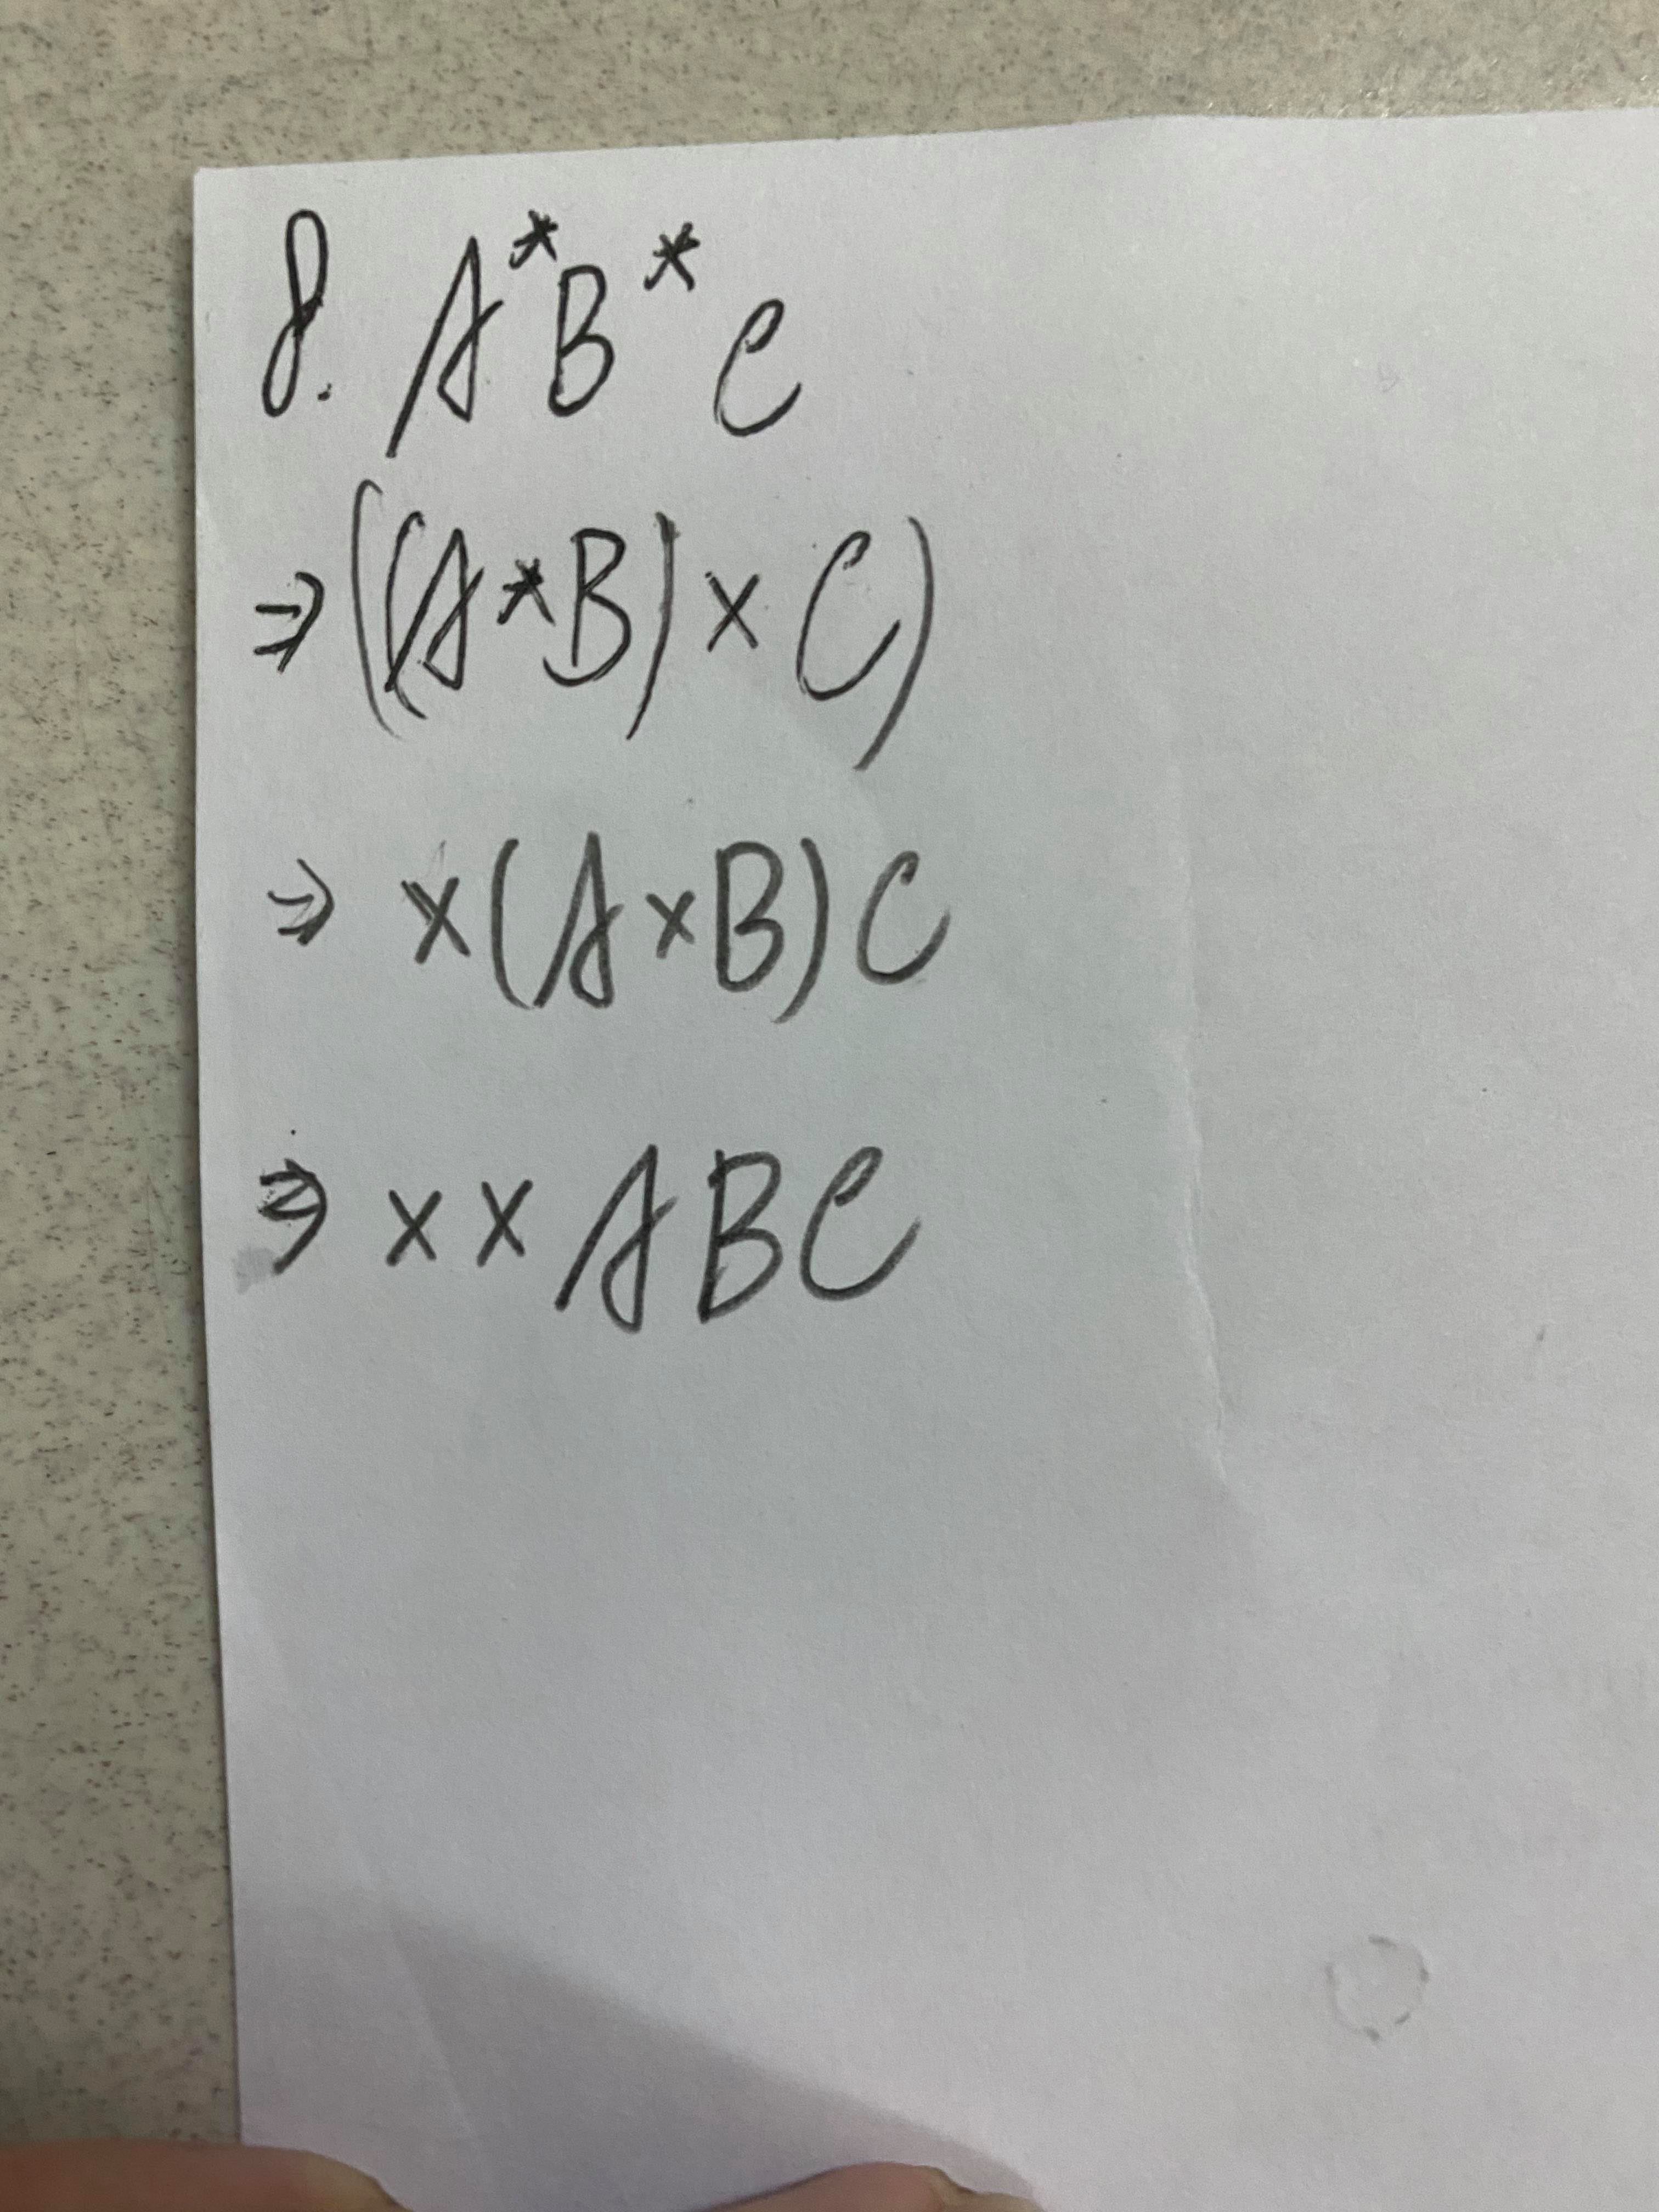 8. A*B*C
⇒ ((A*B)×C)
⇒ ×(A×B)C
⇒ ××ABC